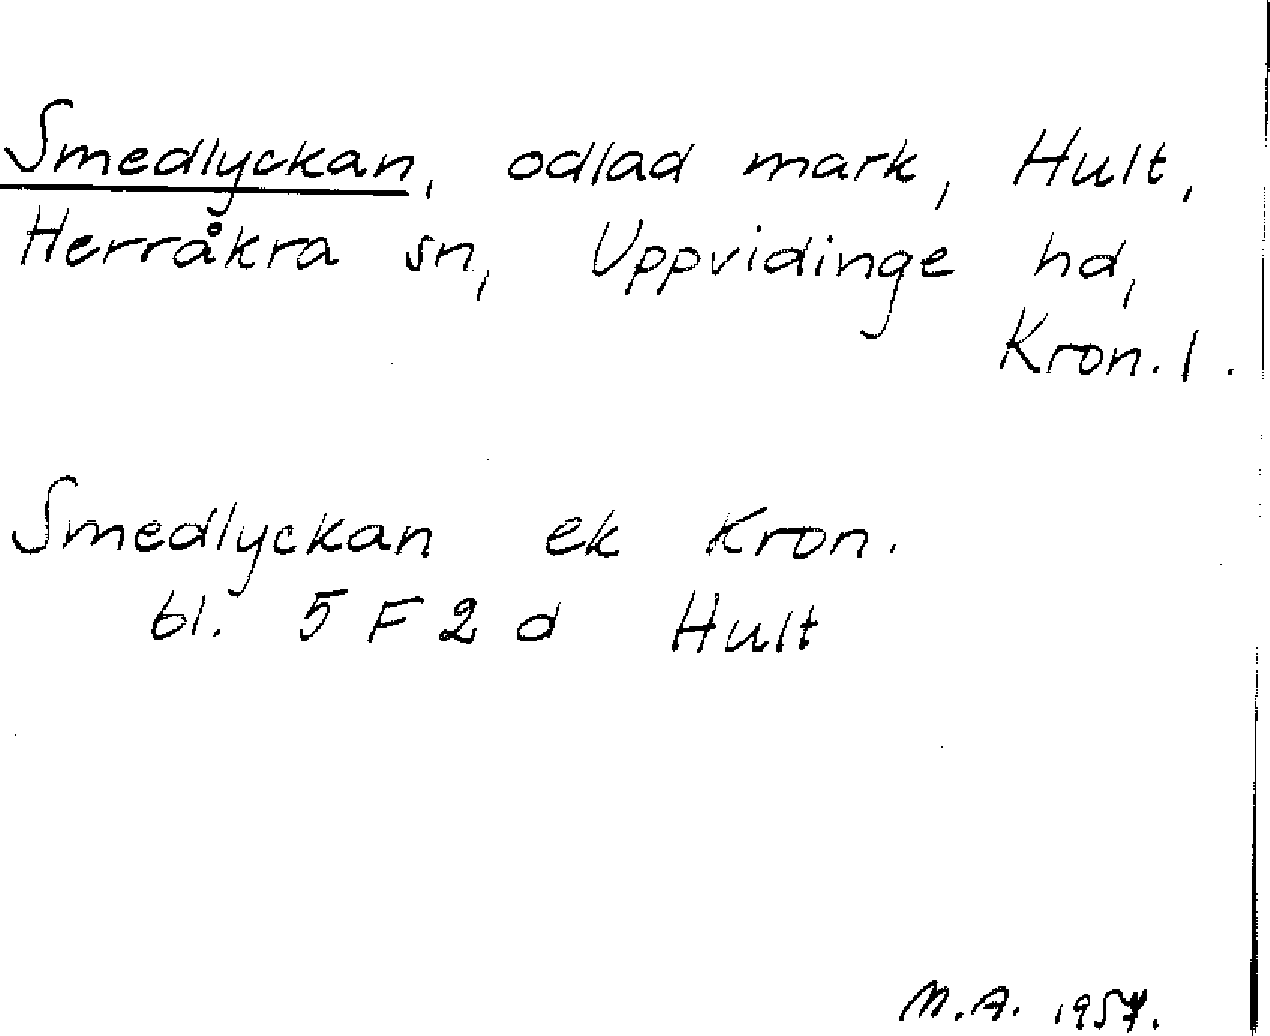 Smedlyckan, odlad mark, Hult,
Herråkra sn, Uppvidinge hd,
Kron. l.
Smedlyckan ek Kron.
bl. 5 F 2 d Hult
M.A.